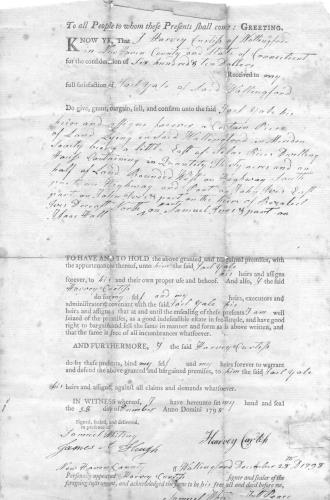 To all People to whom these Presents shall come: GREETING.
KNOW YE, That I Harvey Curtiss of Wallingford
in New Haven County and State of Connecticut
for the consideration of Six hundred ten Dollars
Received to my
full satisfaction of Joel Yale of said Wallingford
Do give, grant, bargain, sell, and confirm unto the said Joel Yale his
heirs and assigns forever a certain Piece
of Land Lying in said Wallingford in Meriden
Society being a little East of
House Containing in Quantity and one
half of Land Bounded West on Highway South
on Highway and Part on East
on part on the heirs of
North on Samuel part on
Hall
TO HAVE AND TO HOLD the above granted and bargained premises, with
the appurtenances thereof, unto him the said Joel Yale
his heirs and assigns
forever, to his and their own proper use and behoof. And also, I the said
Harvey Curtiss
do for my self and my heirs, executors and
administrators covenant with the said Joel Yale his
heirs and assigns, that at and until the ensealing of these presents I am well
seized of the premises, as a good indefeasible estate in fee-simple, and have good
right to bargain and sell the same in manner and form as is above written, and
that the same is free of all incumbrances whatsoever.
AND FURTHERMORE, I the said Harvey Curtiss
do by these presents, bind my self and my heirs forever to warrant
and defend the above granted and bargained premises, to him the said Joel Yale
his heirs and assigns, against all claims and demands whatsoever.
IN WITNESS whereof, I have hereunto set my hand and seal
the 28 day of December Anno Domini 1798
Signed, sealed, and delivered,
in presence of
Samuel Whiting
James Hough
Harvey Curtiss
New Haven County Wallingford December 28th 1798
Personally appeared Harvey Curtiss signer and sealer of the
foregoing instrument, and acknowledged the same to be his free act and deed before me,
Samuel Whiting Just Peace